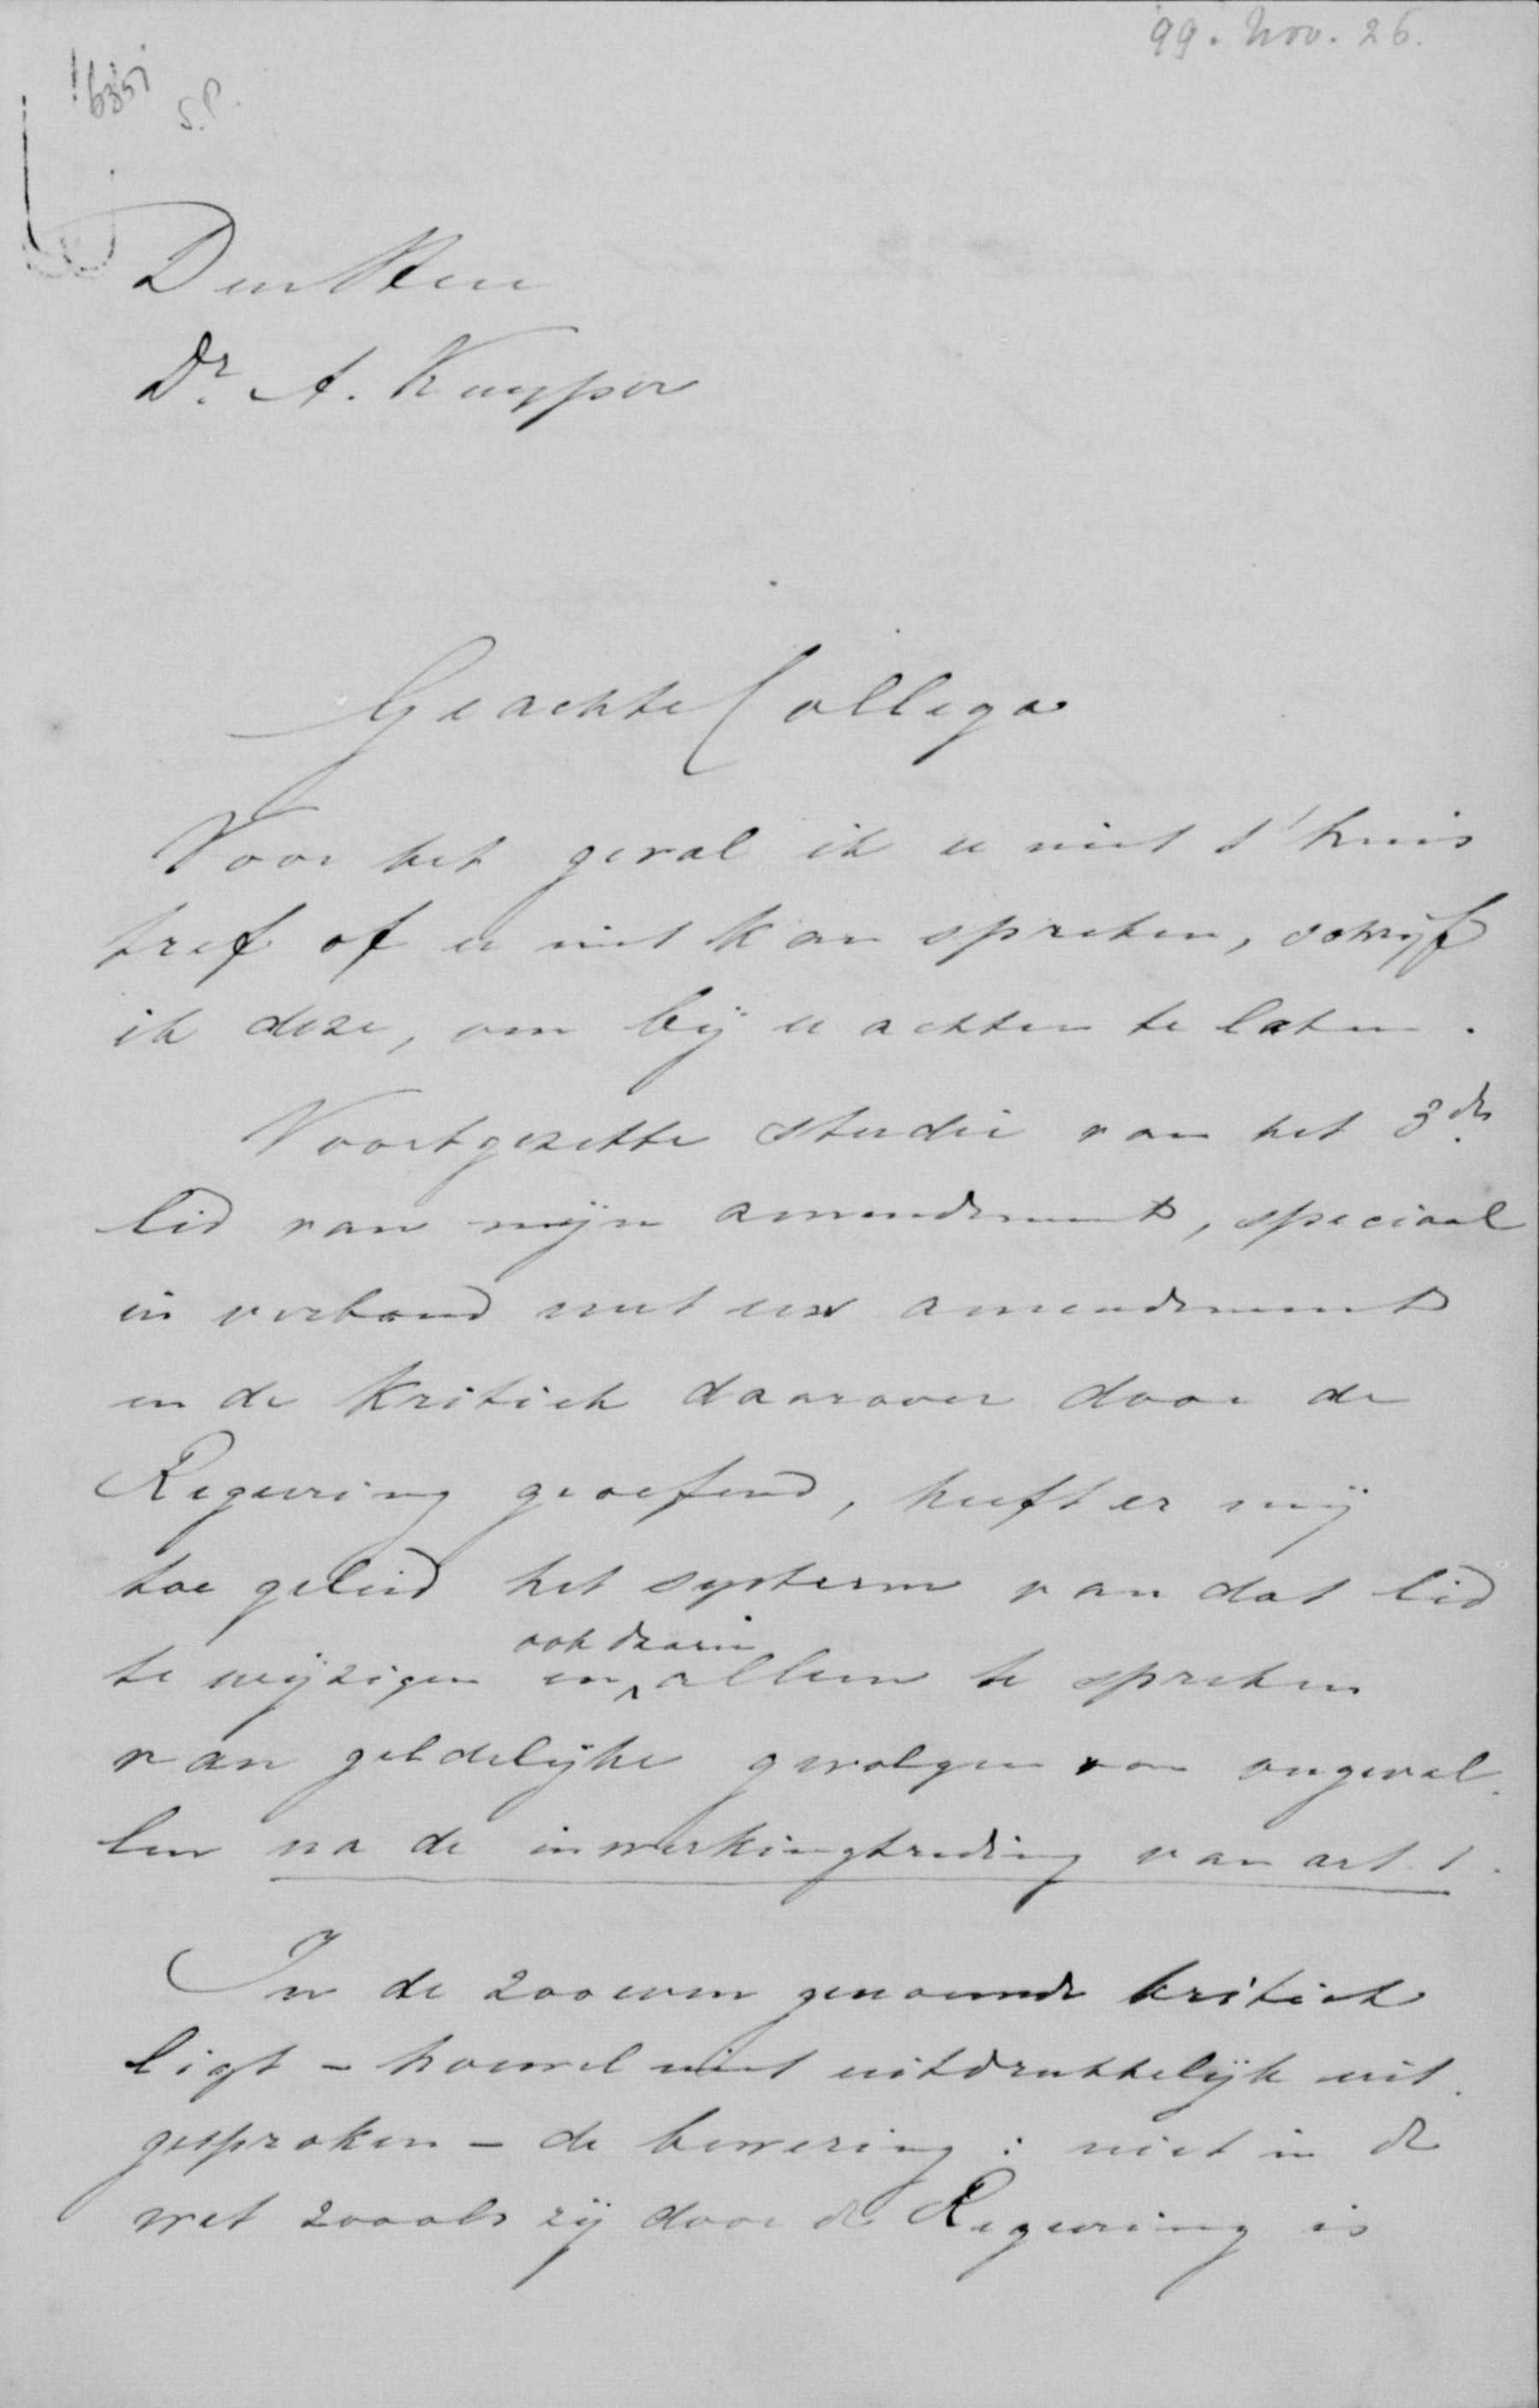 99. Nov. 26.
6351
S.P.
Den Heer
Dr. A. Kuyper
Geachte Collega
Voor het geval ik u niet t'huis
tref of u niet kan spreken, schrijf
ik deze, om bij u achter te laten.
Voortgezette studie van het 3de
lid van mijn amendement, speciaal
in verband met uw amendement
en de kritiek daarover door de
Regeering geoefend, heeft er mij
toe geleid het systeem van dat lid
te wijzigen en ook daarin alleen te spreken
van geldelijke gevolgen van ongeval-
len na de inwerkingtreding van art. 1.
In de zooeven genoemde kritiek
ligt - hoewel niet uitdrukkelijk uit-
gesproken - de bewering: niet in de
wet zooals zij door de Regeering is